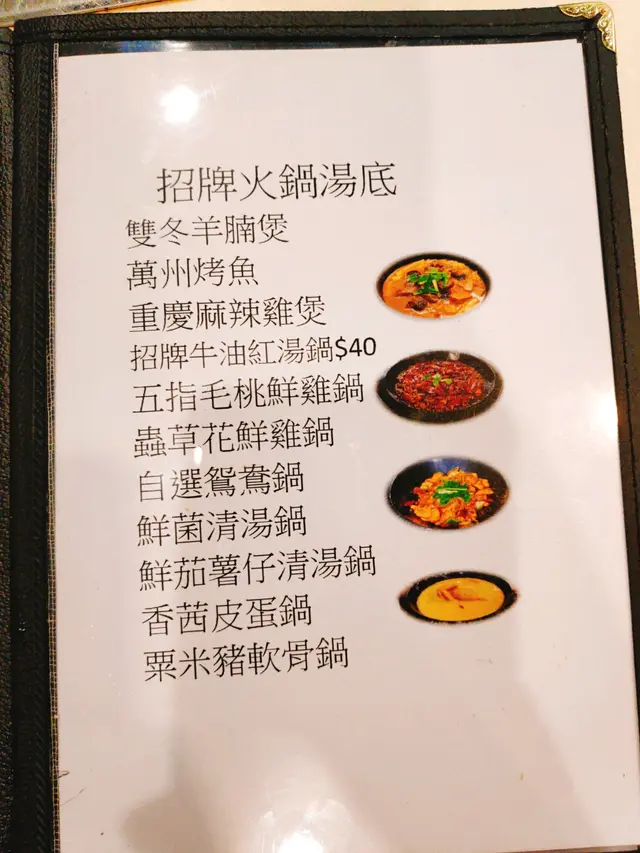 招牌火鍋湯底
雙冬羊腩煲
萬州烤魚
重慶麻辣雞煲
招牌牛油紅湯鍋$40
五指毛桃鮮雞鍋
蟲草花鮮雞鍋
自選鴛鴦鍋
鮮菌清湯鍋
鮮茄薯仔清湯鍋
香茜皮蛋鍋
粟米豬軟骨鍋